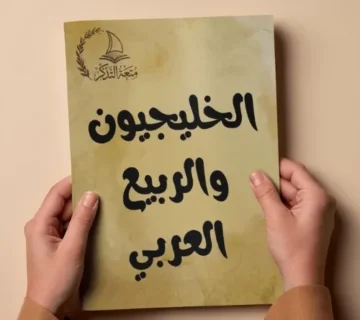 متعة التذكر
الخليجيون
والربيع
العربي